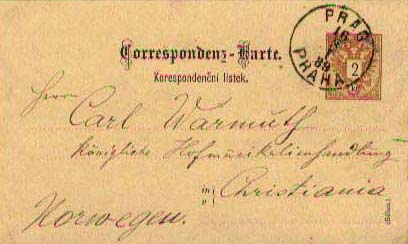 PRAG
16
89
PRAHA
2
Correspondenz-Karte.
Korespondenční lístek.
Herrn
Carl Warmuth
Königliche Hofmusikalienhandlung
in
v
Christiania
Norwegen.
(Böhm.)